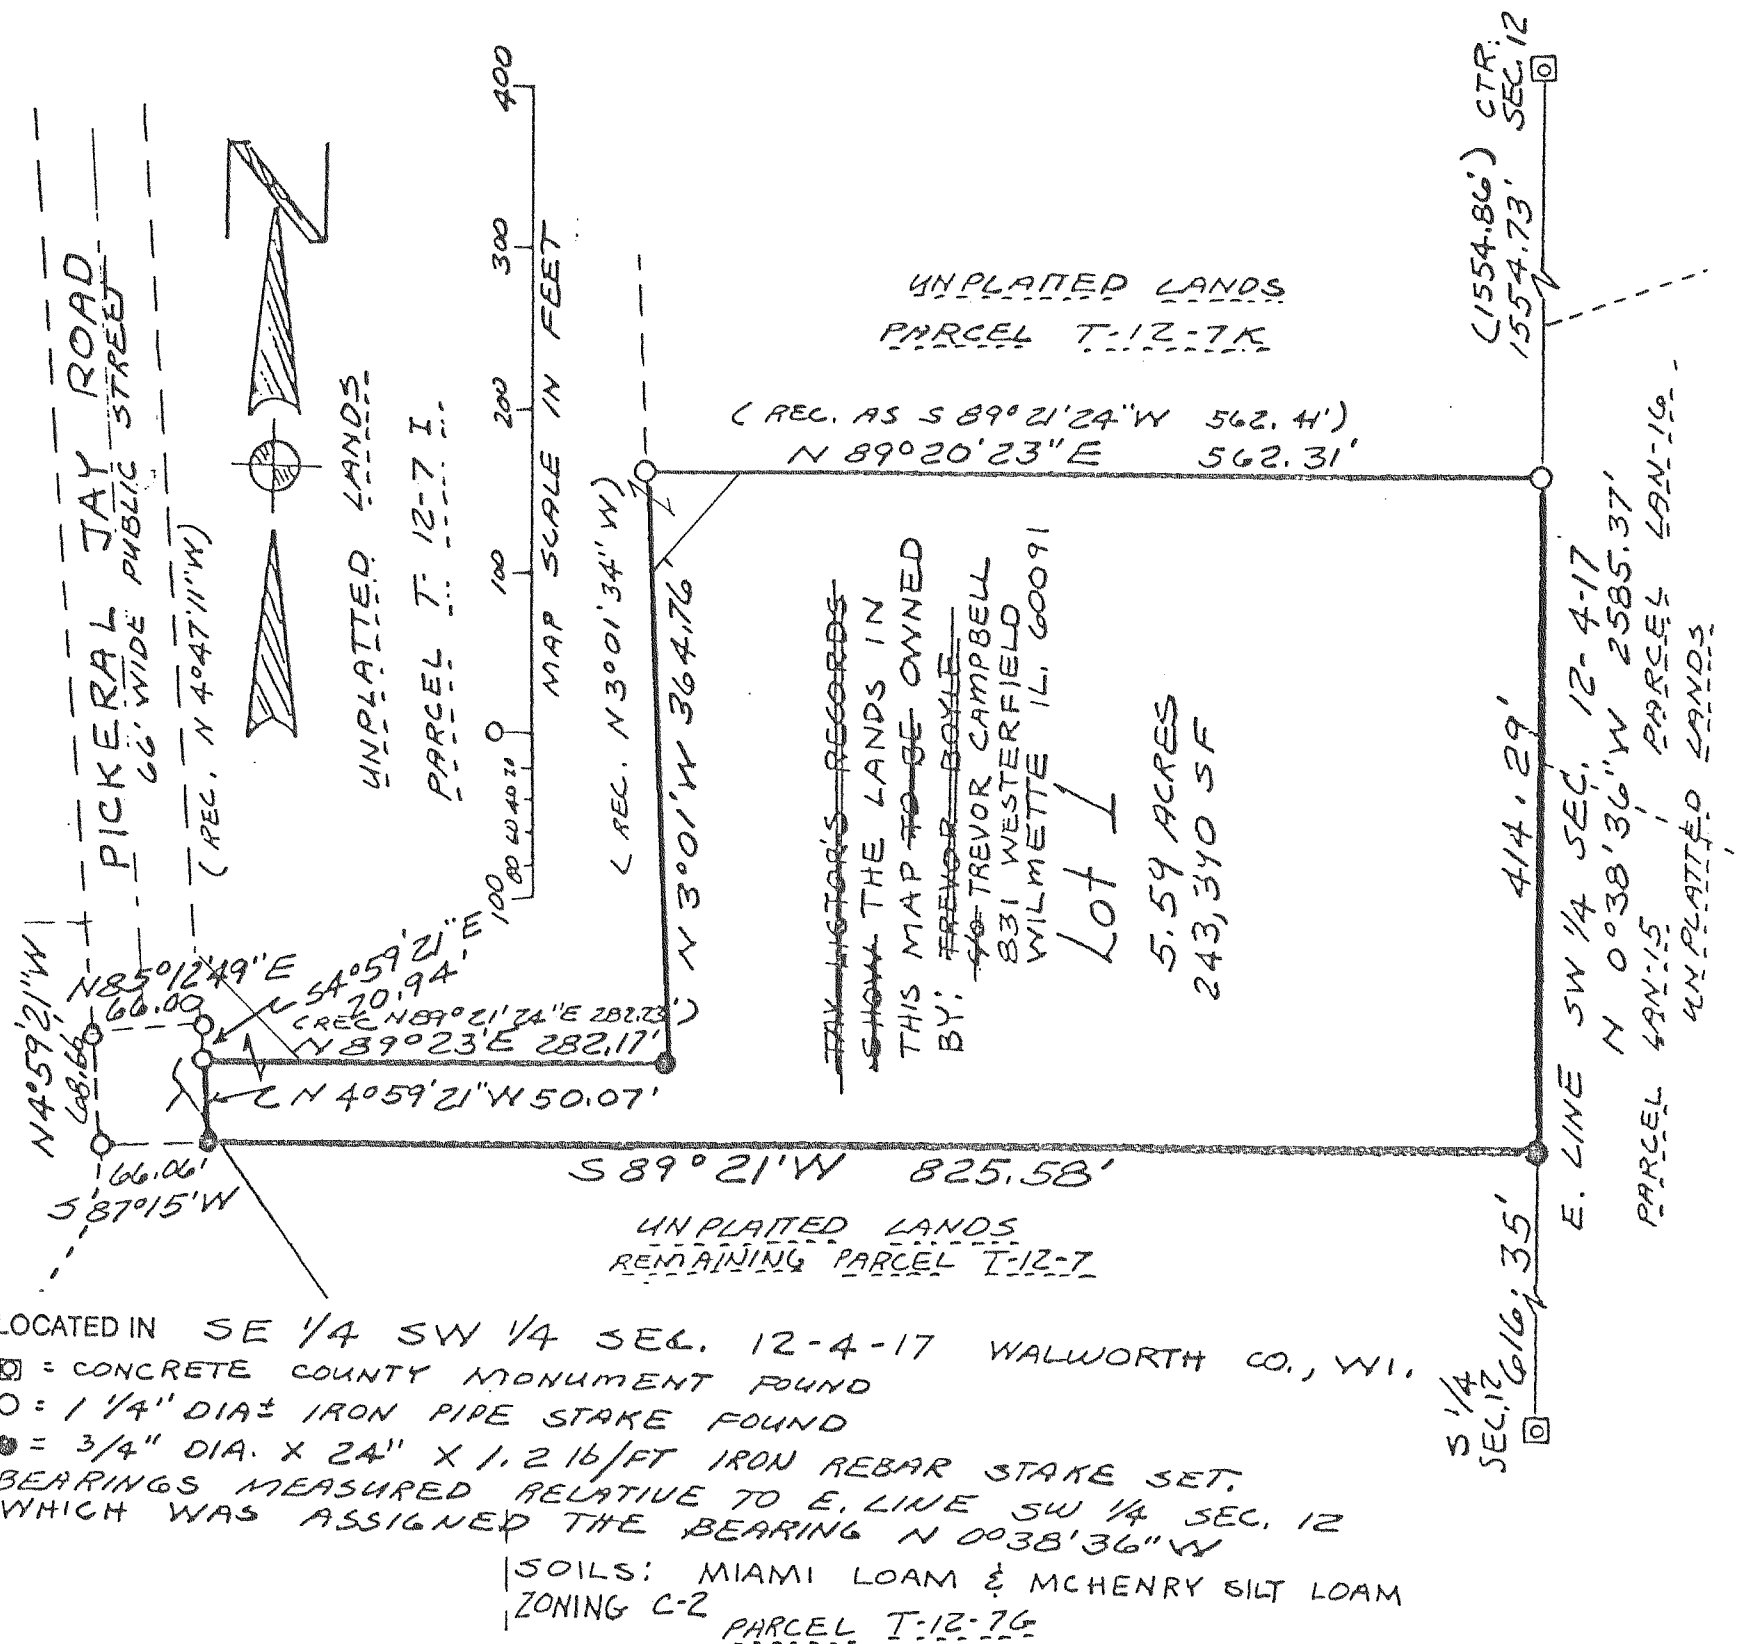 PICKERAL JAY ROAD
66' WIDE PUBLIC STREET
(REC. N 4°47'11"W)
N
UNPLATTED LANDS
PARCEL T-12-7 I
100 80 60 40 20 0 100 200 300 400
MAP SCALE IN FEET
UNPLATTED LANDS
PARCEL T-12-7K
(REC. AS S 89°21'24"W 562.41')
N 89°20'23"E 562.31'
(1554.86') CTR.
1554.73' SEC. 12
(REC. N 3°01'34"W)
N 3°01'W 364.76'
TAX LISTOR'S RECORDS
SHOW THE LANDS IN
THIS MAP TO BE OWNED
BY: TREVOR BOYLE
c/o TREVOR CAMPBELL
831 WESTERFIELD
WILMETTE IL. 60091
Lot 1
5.59 ACRES
243,340 SF
414.29'
E. LINE SW 1/4 SEC. 12-4-17
N 0°38'36"W 2585.37'
PARCEL LAN-15 PARCEL LAN-16
UNPLATTED LANDS
N4°59'21"W
68.66
N85°12'49"E
66.00
S4°59'21"E
20.94'
(REC N89°21'24"E 282.23')
N 89°23'E 282.17'
N 4°59'21"W 50.07'
66.06'
S 87°15'W
S 89°21'W 825.58'
UNPLATTED LANDS
REMAINING PARCEL T-12-7
616.35'
S 1/4
SEC. 12
LOCATED IN SE 1/4 SW 1/4 SEC. 12-4-17 WALWORTH CO., WI.
= CONCRETE COUNTY MONUMENT FOUND
= 1 1/4" DIA± IRON PIPE STAKE FOUND
= 3/4" DIA. X 24" X 1.2 lb/FT IRON REBAR STAKE SET.
BEARINGS MEASURED RELATIVE TO E. LINE SW 1/4 SEC. 12
WHICH WAS ASSIGNED THE BEARING N 0°38'36"W
SOILS: MIAMI LOAM & MCHENRY SILT LOAM
ZONING C-2
PARCEL T-12-7G